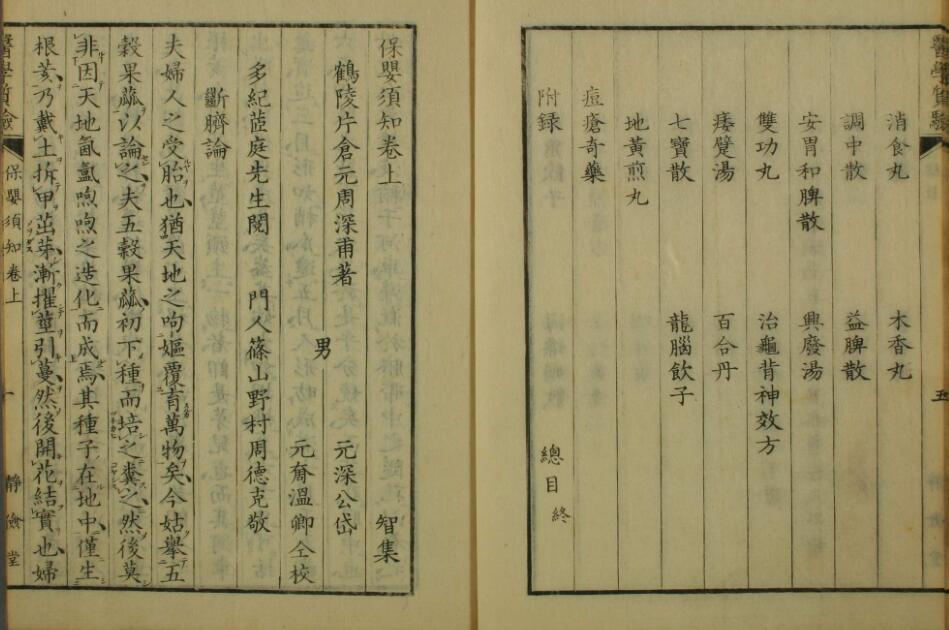 消食丸 木香丸
調中散 益脾散
安胃和脾散 興廢湯
雙功丸 治龜背神效方
痿躄湯 百合丹
七寶散 龍腦飲子
地黃煎丸
痘瘡奇藥
附録 總目終
五
保嬰須知卷上 智集
鶴陵片倉元周深甫著 男 元深公岱
元喬溫卿仝校
多紀茝庭先生閱 門人篠山野村周德克敬
斷臍論
夫婦人之受胎也猶天地之呴嫗覆育萬物矣今姑擧五
穀果蓏以論之夫五穀果蓏初下種而培之糞之然後莫
非因天地氤氳煦煦之造化而成焉其種子在地中僅生
根荄乃戴土拆甲茁芽漸擢莖引蔓然後開花結實也婦
醫學質驗 保嬰須知卷上 一 靜儉堂